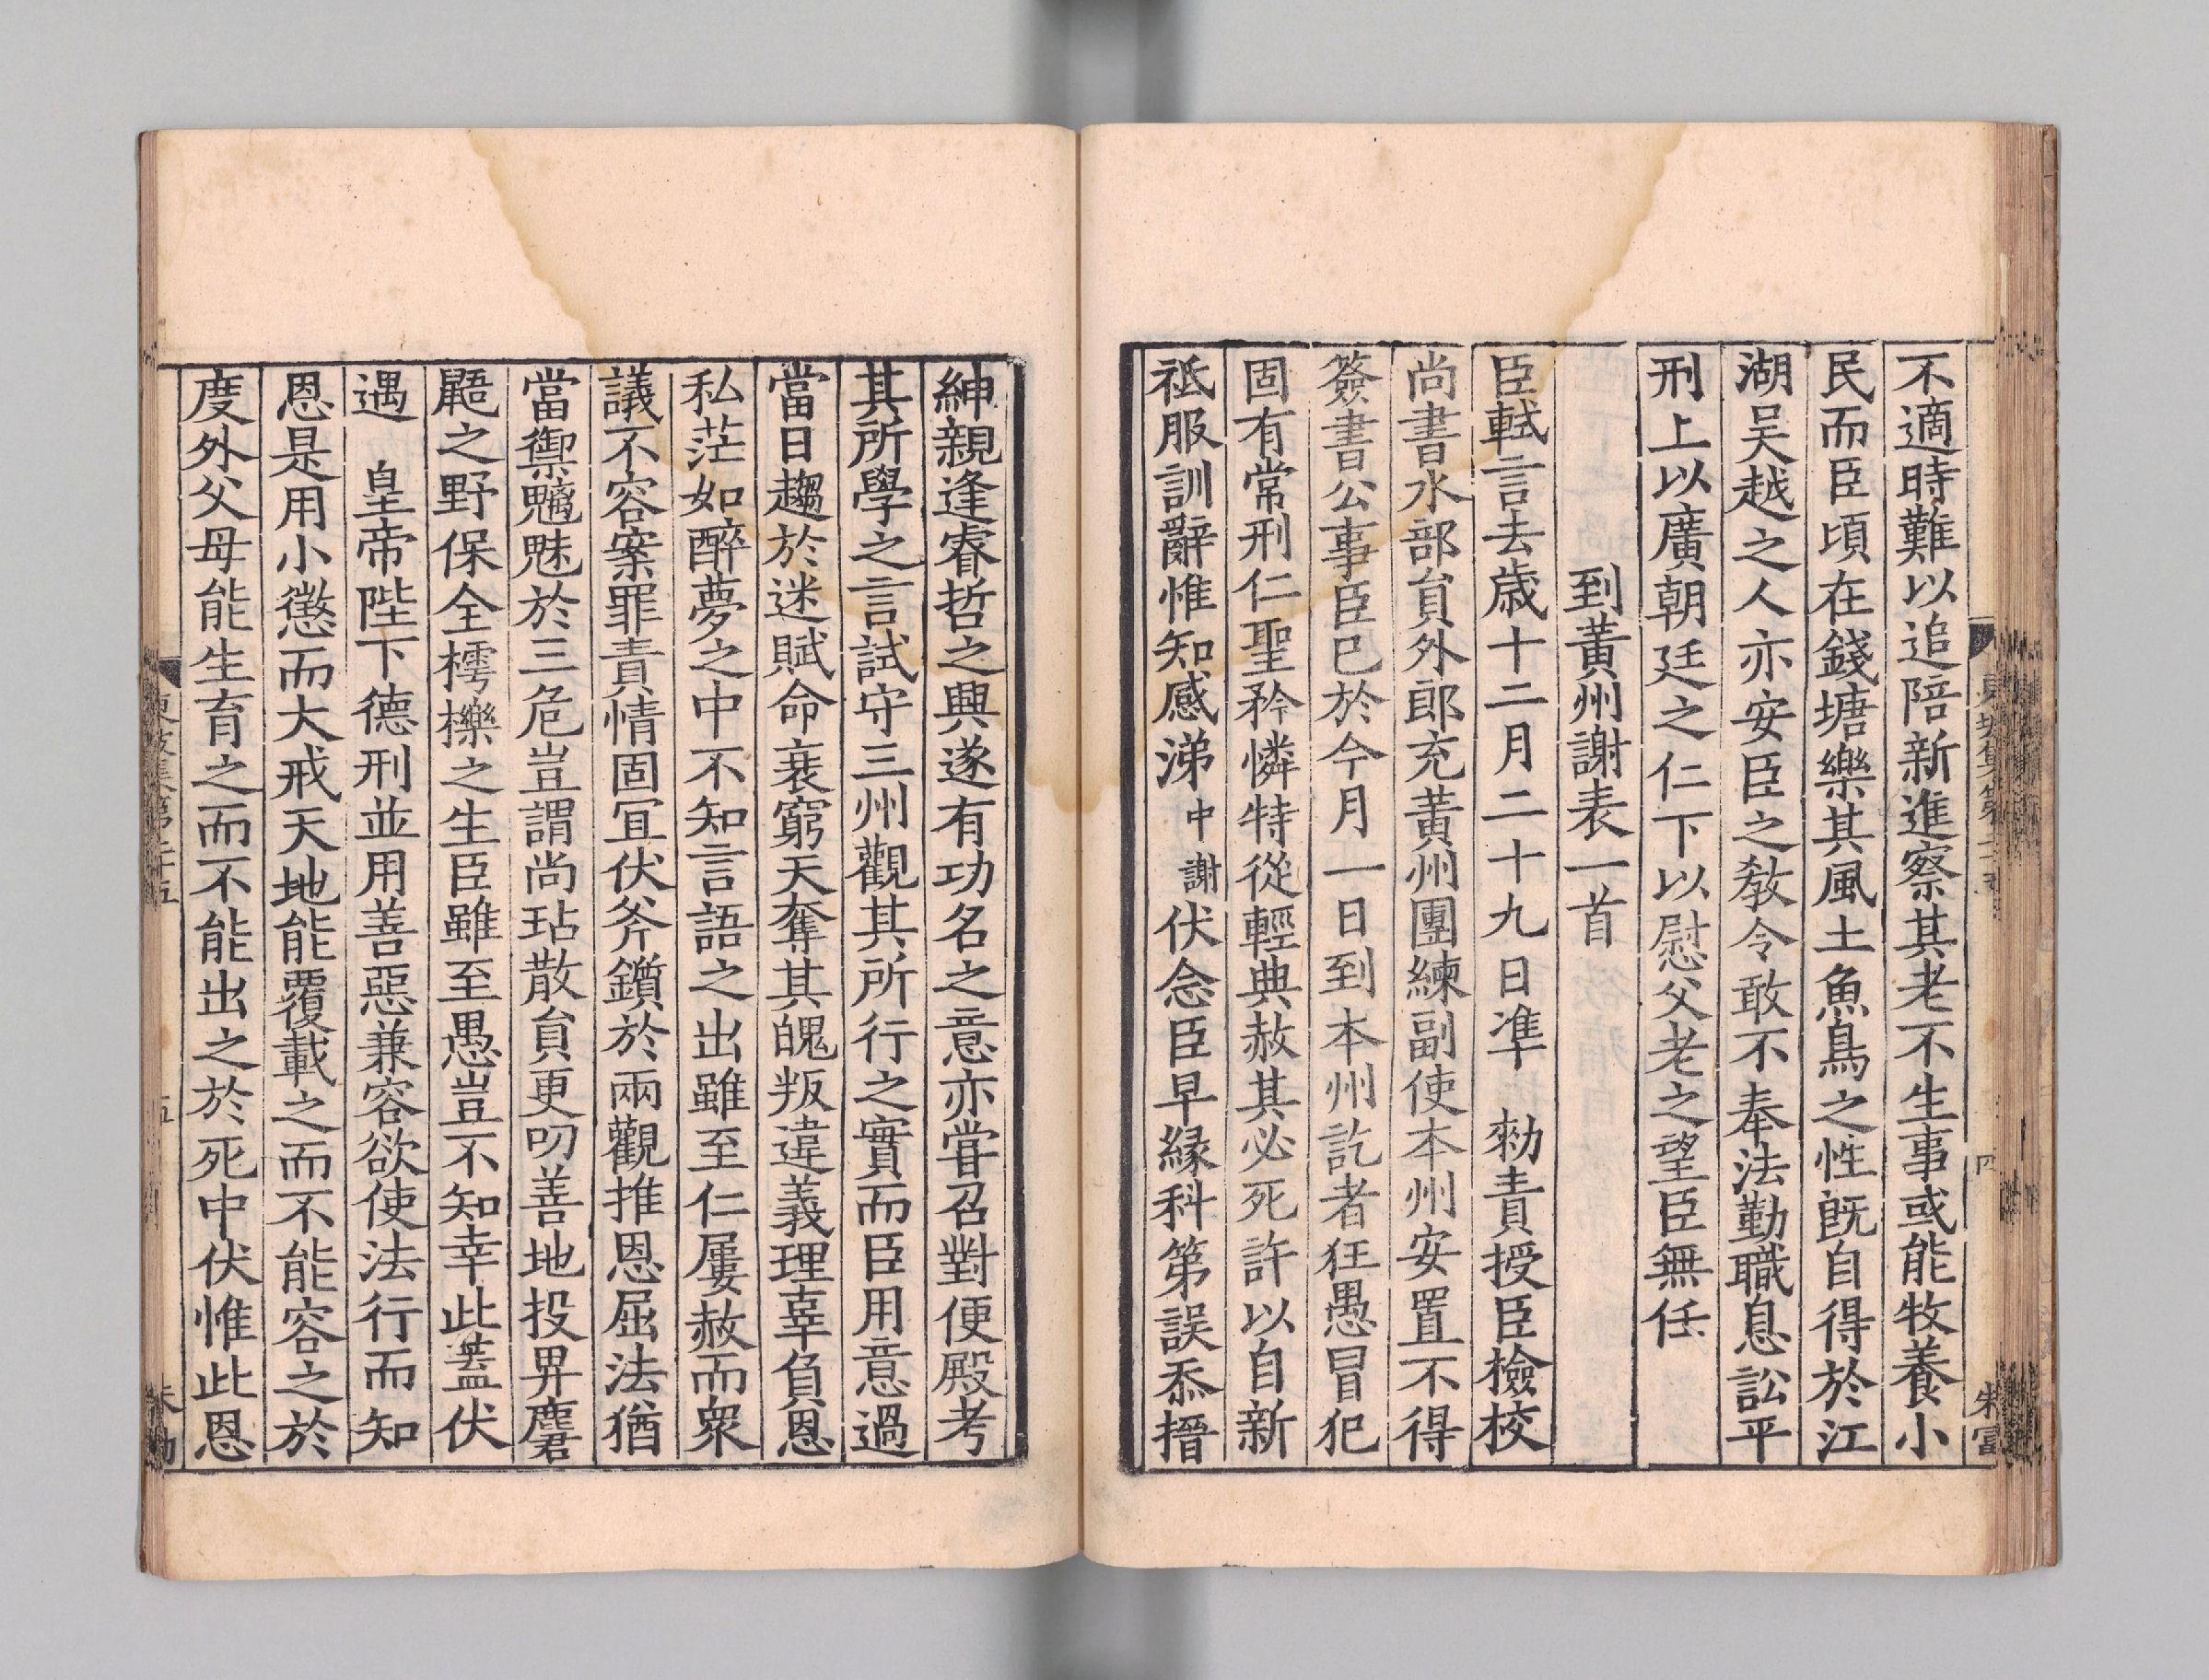 不適時難以追陪新進察其老不生事或能牧養小
民而臣頃在錢塘樂其風土魚鳥之性旣自得於江
湖吴越之人亦安臣之敎令敢不奉法勤職息訟平
刑上以廣朝廷之仁下以慰父老之望臣無任
到黃州謝表一首
臣軾言去歲十二月二十九日準 勑責授臣檢校
尚書水部貟外郎充黃州團練副使本州安置不得
簽書公事臣已於今月一日到本州訖者狂愚冒犯
固有常刑仁聖矜憐特從輕典赦其必死許以自新
祗服訓辭惟知感涕中謝伏念臣早緣科第誤忝搢
紳親逢睿哲之興遂有功名之意亦甞召對便殿考
其所學之言試守三州觀其所行之實而臣用意過
當日趨於迷賦命衰窮天奪其魄叛違義理辜負恩
私茫如醉夢之中不知言語之出雖至仁屢赦而衆
議不容案罪責情固冝伏斧鑕於兩觀推恩屈法猶
當禦魑魅於三危豈謂尚玷散貟更叨善地投畀麏
鼯之野保全樗櫟之生臣雖至愚豈不知幸此蓋伏
遇 皇帝陛下德刑並用善惡兼容欲使法行而知
恩是用小懲而大戒天地能覆載之而不能容之於
度外父母能生育之而不能出之於死中伏惟此恩